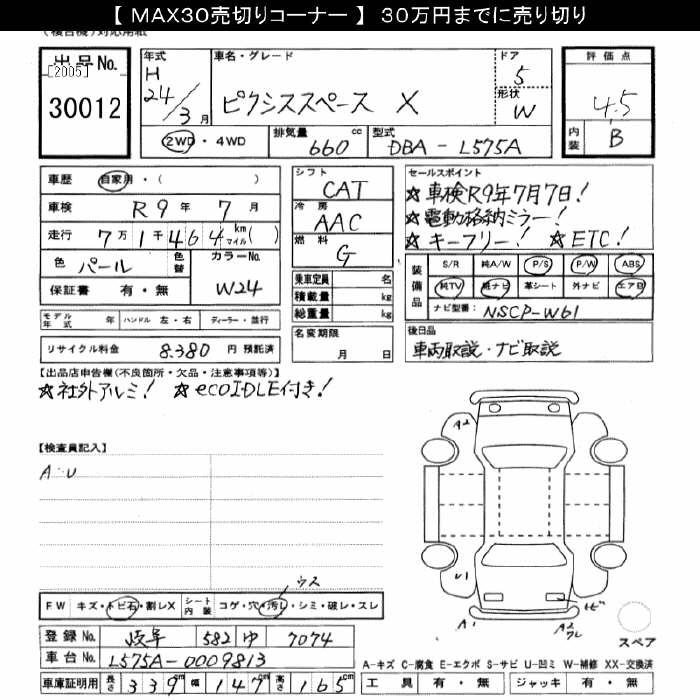 【 MAX30売切りコーナー 】 30万円までに売り切り
(複合機)対応用紙
出品No.
[2005]
30012
年式
H
24/3月
車名・グレード
ピクシススペース X
ドア
5
形状
W
2WD・4WD
排気量
660 cc
型式
DBA-L575A
評価点
4.5
内装
B
車歴
自家用・( )
車検
R 9 年 7 月
走行
7万1千464 km マイル( )
色
パール
色替
カラーNo.
W24
保証書 有・無
モデル年式 年
ハンドル 左・右
ディーラー・並行
リサイクル料金 8.380 円 預託済
シフト
CAT
冷房
AAC
燃料
G
乗車定員 名
積載量 kg
総重量 kg
名変期限
月 日
セールスポイント
☆車検R9年7月7日!
☆電動格納ミラー!
☆キーフリー! ☆ETC!
装備品
S/R 純A/W P/S P/W ABS
純TV 純ナビ 革シート 外ナビ エアB
ナビ型番: NSCP-W61
後日品
車両取説・ナビ取説
【出品店申告欄(不良箇所・欠品・注意事項等)】
☆社外アルミ! ☆ecoIDLE付き!
【検査員記入】
A・U
A2
U1
A1
A2
トビ
スペア
ウス
FW キズ・トビ石・割レX
シート内装 コゲ・穴・汚レ・シミ・破レ・スレ
登録No. 岐阜 582 ゆ 7074
車台No. L575A-0009813
車庫証明用 長さ 339 cm 幅 147 cm 高さ 165 cm
A-キズ C-腐食 E-エクボ S-サビ U-凹ミ W-補修 XX-交換済
工具 有・無 ジャッキ 有・無